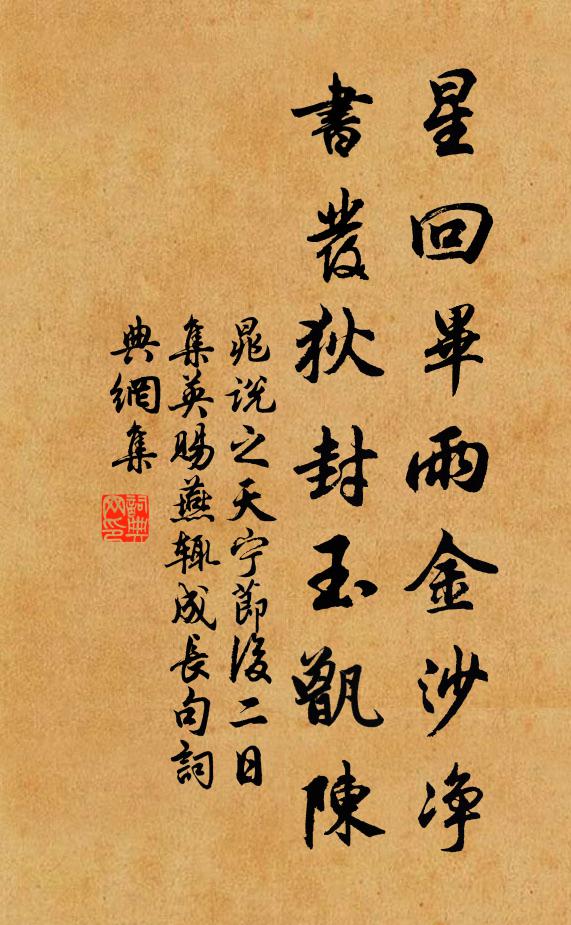 星回畢雨金沙净
書發狄封玉甑陳
晁説之天宁節後二日
集英賜燕輒成長句詞
典網集
詞典
网印